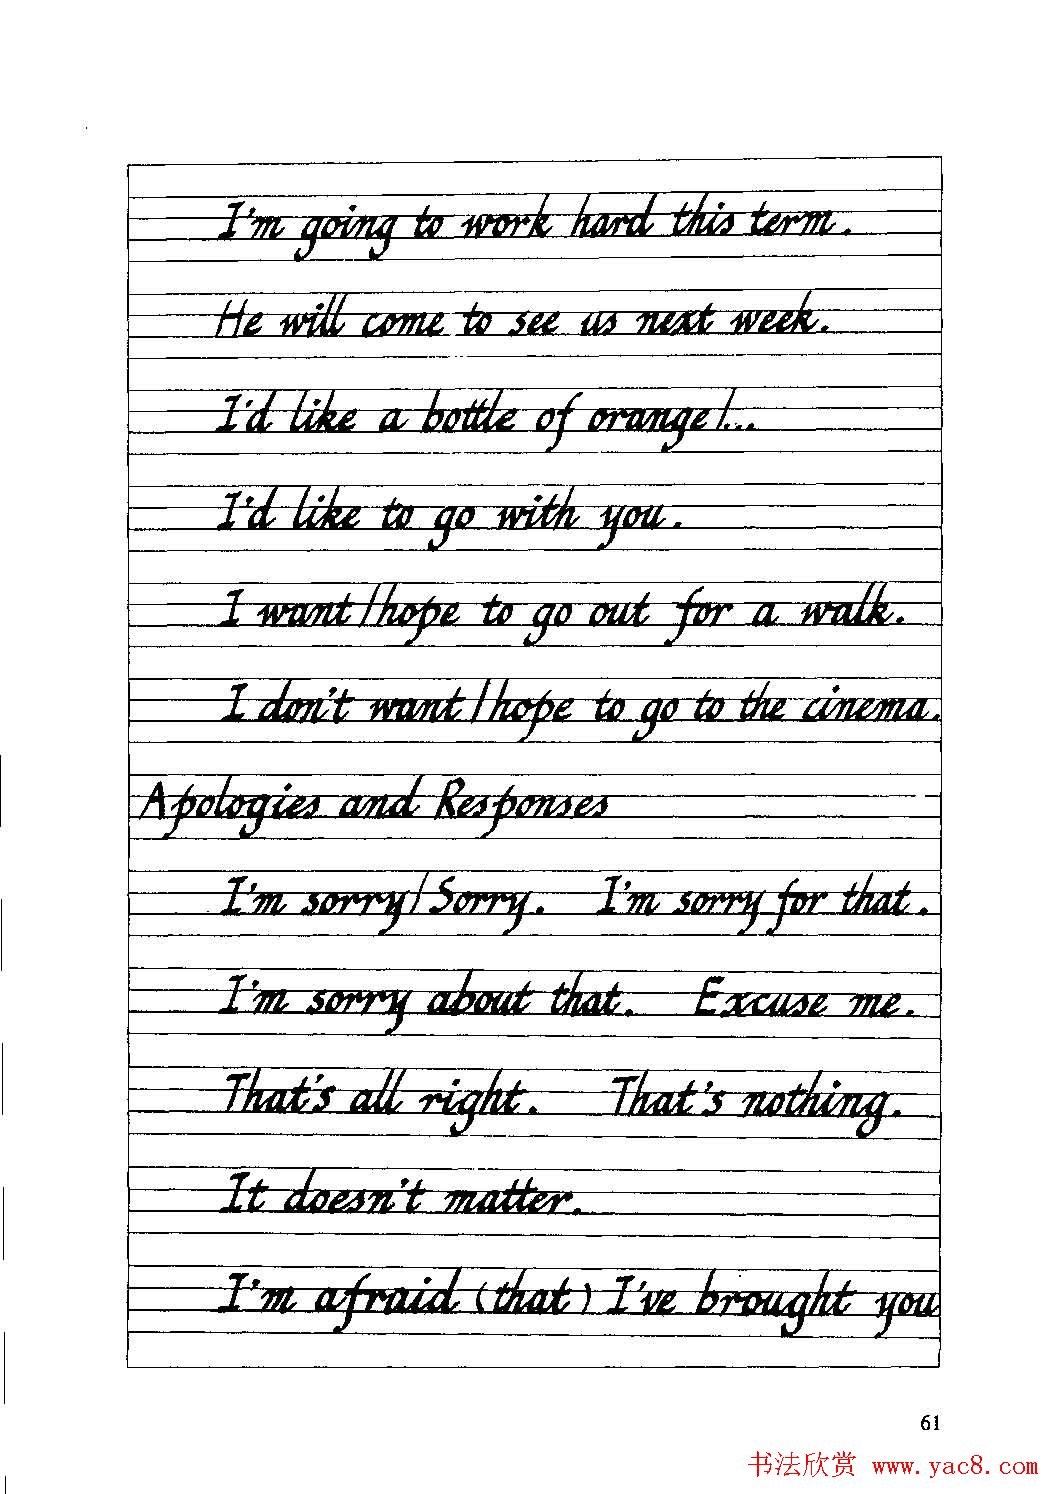 I'm going to work hard this term.
He will come to see us next week.
I'd like a bottle of orange/...
I'd like to go with you.
I want/hope to go out for a walk.
I don't want/hope to go to the cinema.
Apologies and Responses
I'm sorry/Sorry. I'm sorry for that.
I'm sorry about that. Excuse me.
That's all right. That's nothing.
It doesn't matter.
I'm afraid (that) I've brought you
61
书法欣赏 www.yac8.com